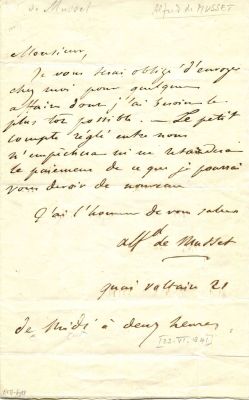 de Musset
Alfred de MUSSET
Monsieur,
Je vous serai obligé d'envoyer
chez moi pour quelques
affaires dont j'ai besoin le
plus tôt possible. — Le petit
compte réglé entre nous
n'empêchera ni ne retardera
le paiement de ce que je pourrai
vous devoir de nouveau
J'ai l'honneur de vous saluer
Alf^d de Musset
quai voltaire 21
de Midi à deux heures.